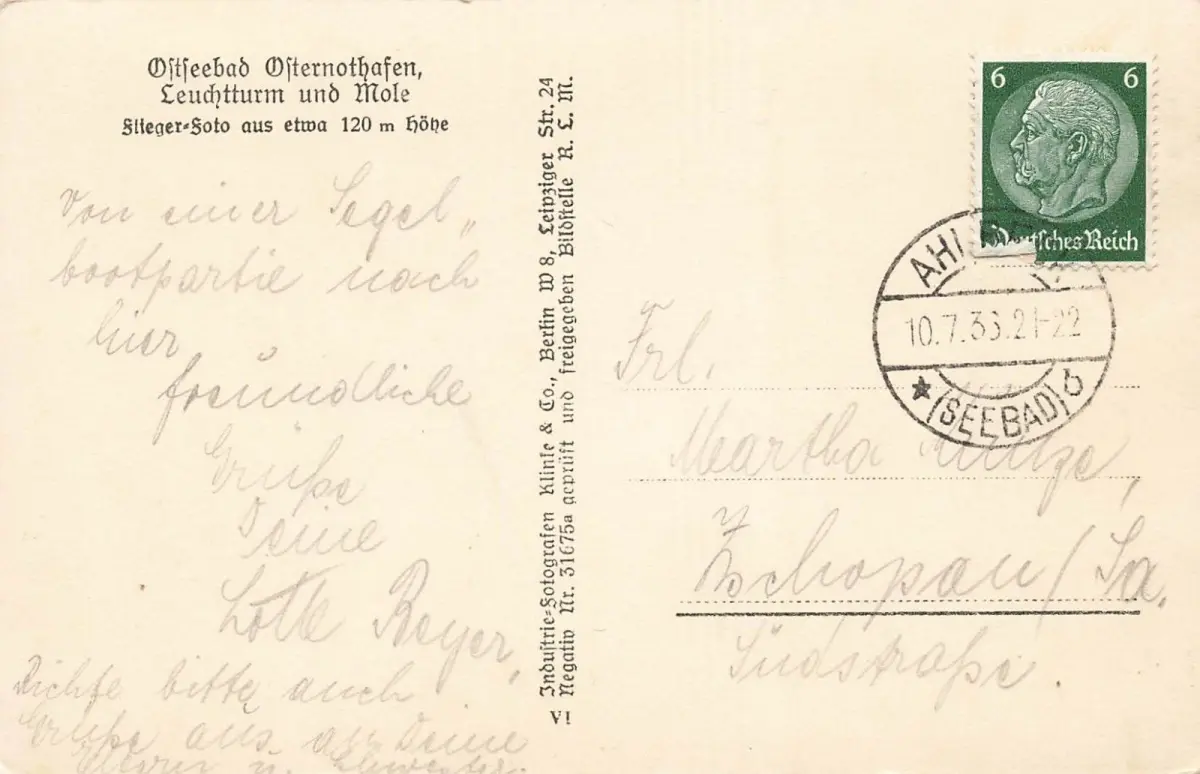 Ostseebad Osternothafen,
Leuchtturm und Mole
Flieger-Foto aus etwa 120 m Höhe
Von einer Segel„
bootpartie nach
hier
freundliche
Grüße
Deine
Lotte Beyer,
Richte bitte auch
Grüße aus an Deine
Eltern u. Schwester.
Industrie-Fotografen Klinke & Co., Berlin W 8, Leipziger Str. 24
Negativ Nr. 31675a geprüft und freigegeben Bildstelle R. L. M.
VI
6 6
Deutsches Reich
AHL
10.7.36.21-22
(SEEBAD) b
Frl.
Martha
Zschopau / Sa.
Südstraße.